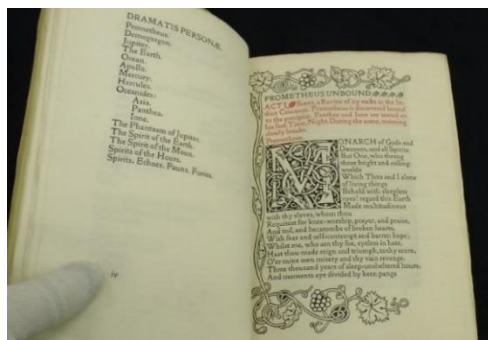 DRAMATIS PERSONÆ.
Prometheus.
Demogorgon.
Jupiter.
The Earth.
Ocean.
Apollo.
Mercury.
Hercules.
Oceanides:
Asia.
Panthea.
Ione.
The Phantasm of Jupiter.
The Spirit of the Earth.
The Spirit of the Moon.
Spirits of the Hours.
Spirits. Echoes. Fauns. Furies.
iv.
PROMETHEUS UNBOUND
ACT I. Scene, a Ravine of icy rocks in the In-
dian Caucasus. Prometheus is discovered bound
to the precipice. Panthea and Ione are seated at
his feet. Time, Night. During the scene, morning
slowly breaks.
Prometheus.
MONARCH of Gods and
Dæmons, and all Spirits
But One, who throng
those bright and rolling
worlds
Which Thou and I alone
of living things
Behold with sleepless
eyes! regard this Earth
Made multitudinous
with thy slaves, whom thou
Requitest for knee-worship, prayer, and praise,
And toil, and hecatombs of broken hearts,
With fear and self-contempt and barren hope;
Whilst me, who am thy foe, eyeless in hate,
Hast thou made reign and triumph, to thy scorn,
O'er mine own misery and thy vain revenge.
Three thousand years of sleep-unsheltered hours,
And moments aye divided by keen pangs